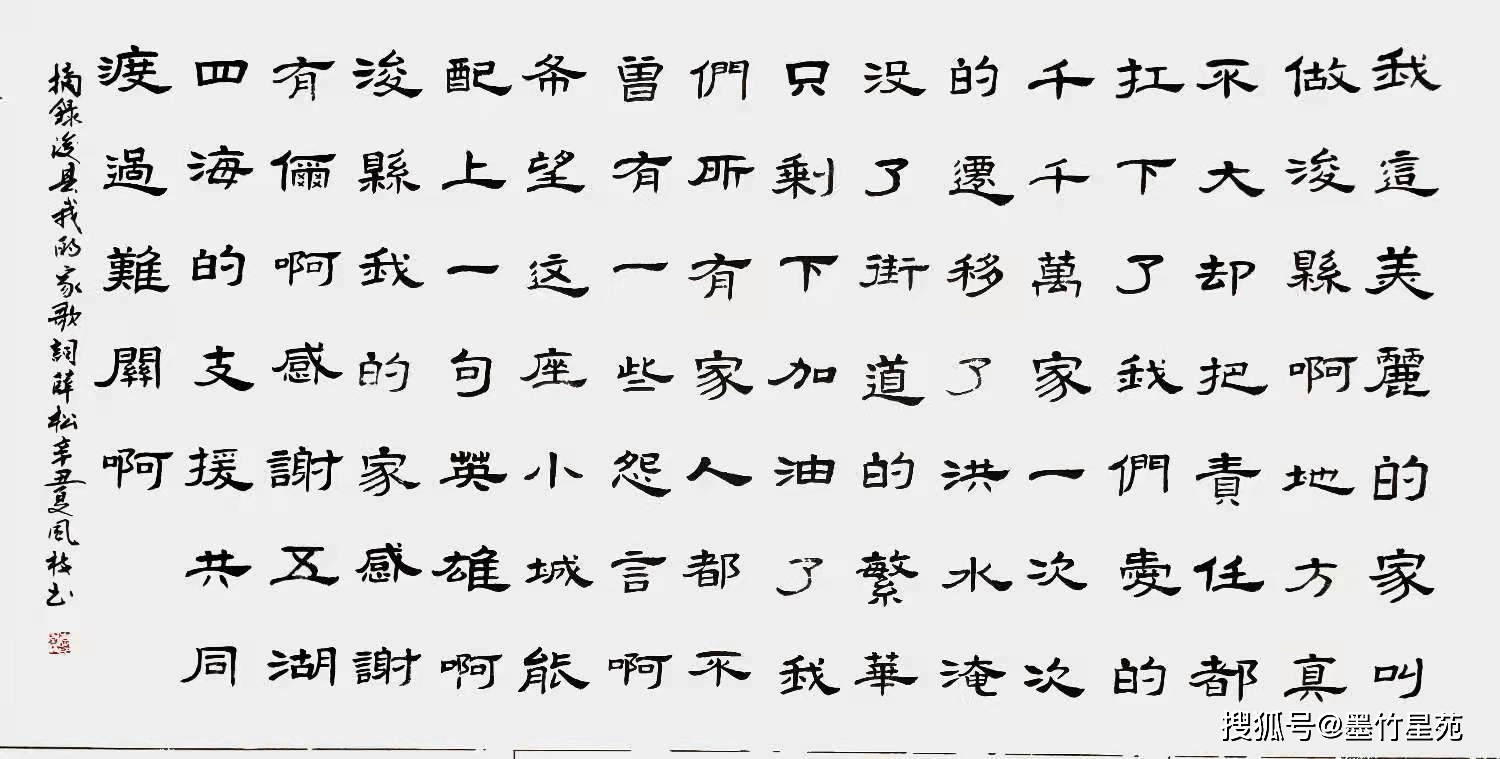 我這美麗的家叫
做浚縣啊地方真
不大却把責任都
扛下了我們愛的
千千萬家一次次
的遷移了洪水淹
没了街道的繁華
只剩下加油了我
們所有家人都不
曾有一些怨言啊
希望这座小城能
配上一句英雄啊
浚縣我的家感謝
有倆啊感謝五湖
四海的支援共同
渡過難關啊
摘錄浚县我的家歌詞薛松辛丑夏風枝书
搜狐号@墨竹星苑